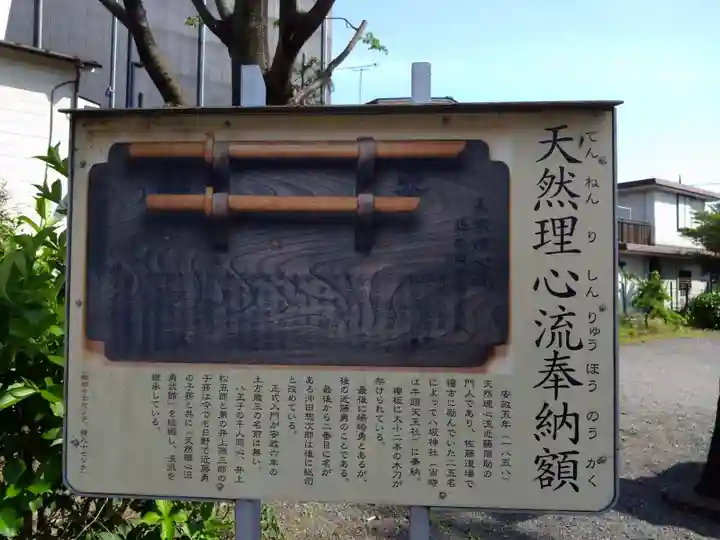 天然理心流奉納額
てんねんりしんりゅうほうのうがく
安政五年(一八五八)
天然理心流近藤周助の
門人であり、佐藤道場で
稽古に励んでいた二五名
によって八坂神社(当時
は牛頭天王社)に奉納。
欅板に大小二本の木刀が
架けられている。
最後に嶋崎勇とあるが、
後の近藤勇のことである。
最後から二番目に名が
ある沖田惣次郎は後に総司
と改めている。
正式入門が安政六年の
土方歳三の名前は無い。
八王子の千人同心、井上
松五郎と弟の井上源三郎の
子孫は今でも日野で近藤勇
の子孫と共に『天然理心流
勇武館』を組織し、流派を
継承している。